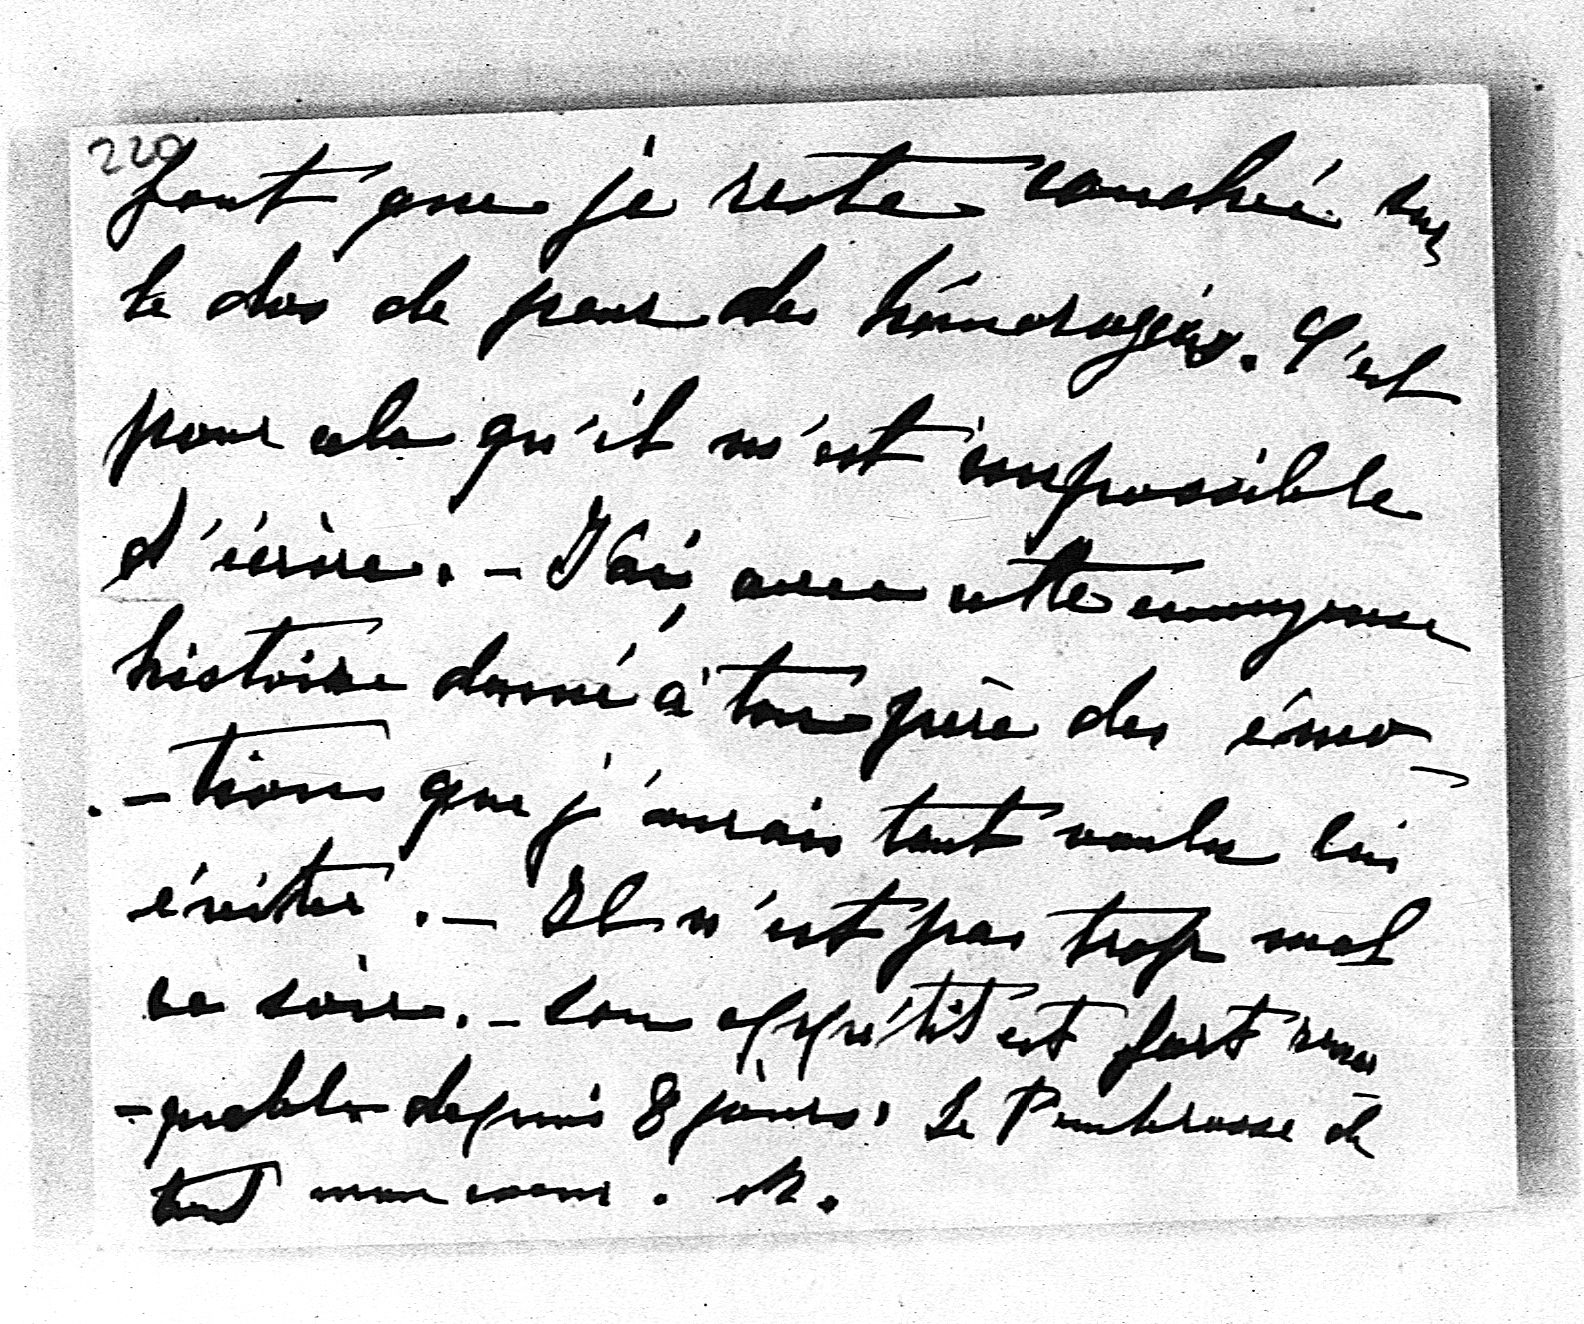 220
faut que je reste couché sur
le dos de peur des hémoragies. C'est
pour cela qu'il m'est impossible
d'écrire. – J'ai avec cette
histoire donné à ton père des émo
-tions que j'aurais tant voulu lui
éviter. – Il n'est pas trop mal
ce soir. – Son appétit est fort remar
-quable depuis 8 jours. Je t'embrasse de
tout mon coeur. M.